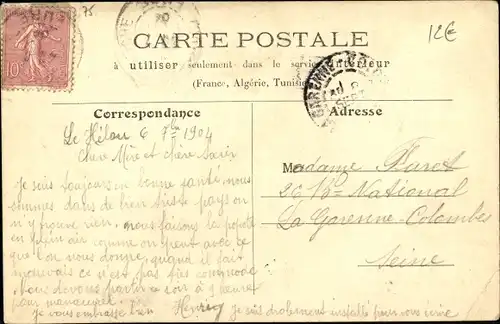 75
12€
CARTE POSTALE
à utiliser seulement dans le service intérieur
(France, Algérie, Tunisie
Correspondance
Adresse
GARENNE
10
Le Hélou 6 7bre 1904
Chère Mère et chère Sœur
Je suis toujours en bonne santé, nous
sommes dans de bien triste pays on
n'y trouve rien, nous faisons la popote
en plein air comme on peut avec ce
que l'on nous donne, quand il fait
mauvais ce n'est pas très commode
Nous devons partir ce soir à 9 heures
pour manœuvrer
Je vous embrasse bien Henri
Je suis drolement installé pour vous écrire
Madame Parot
26 Bd National
La Garenne-Colombes
Seine